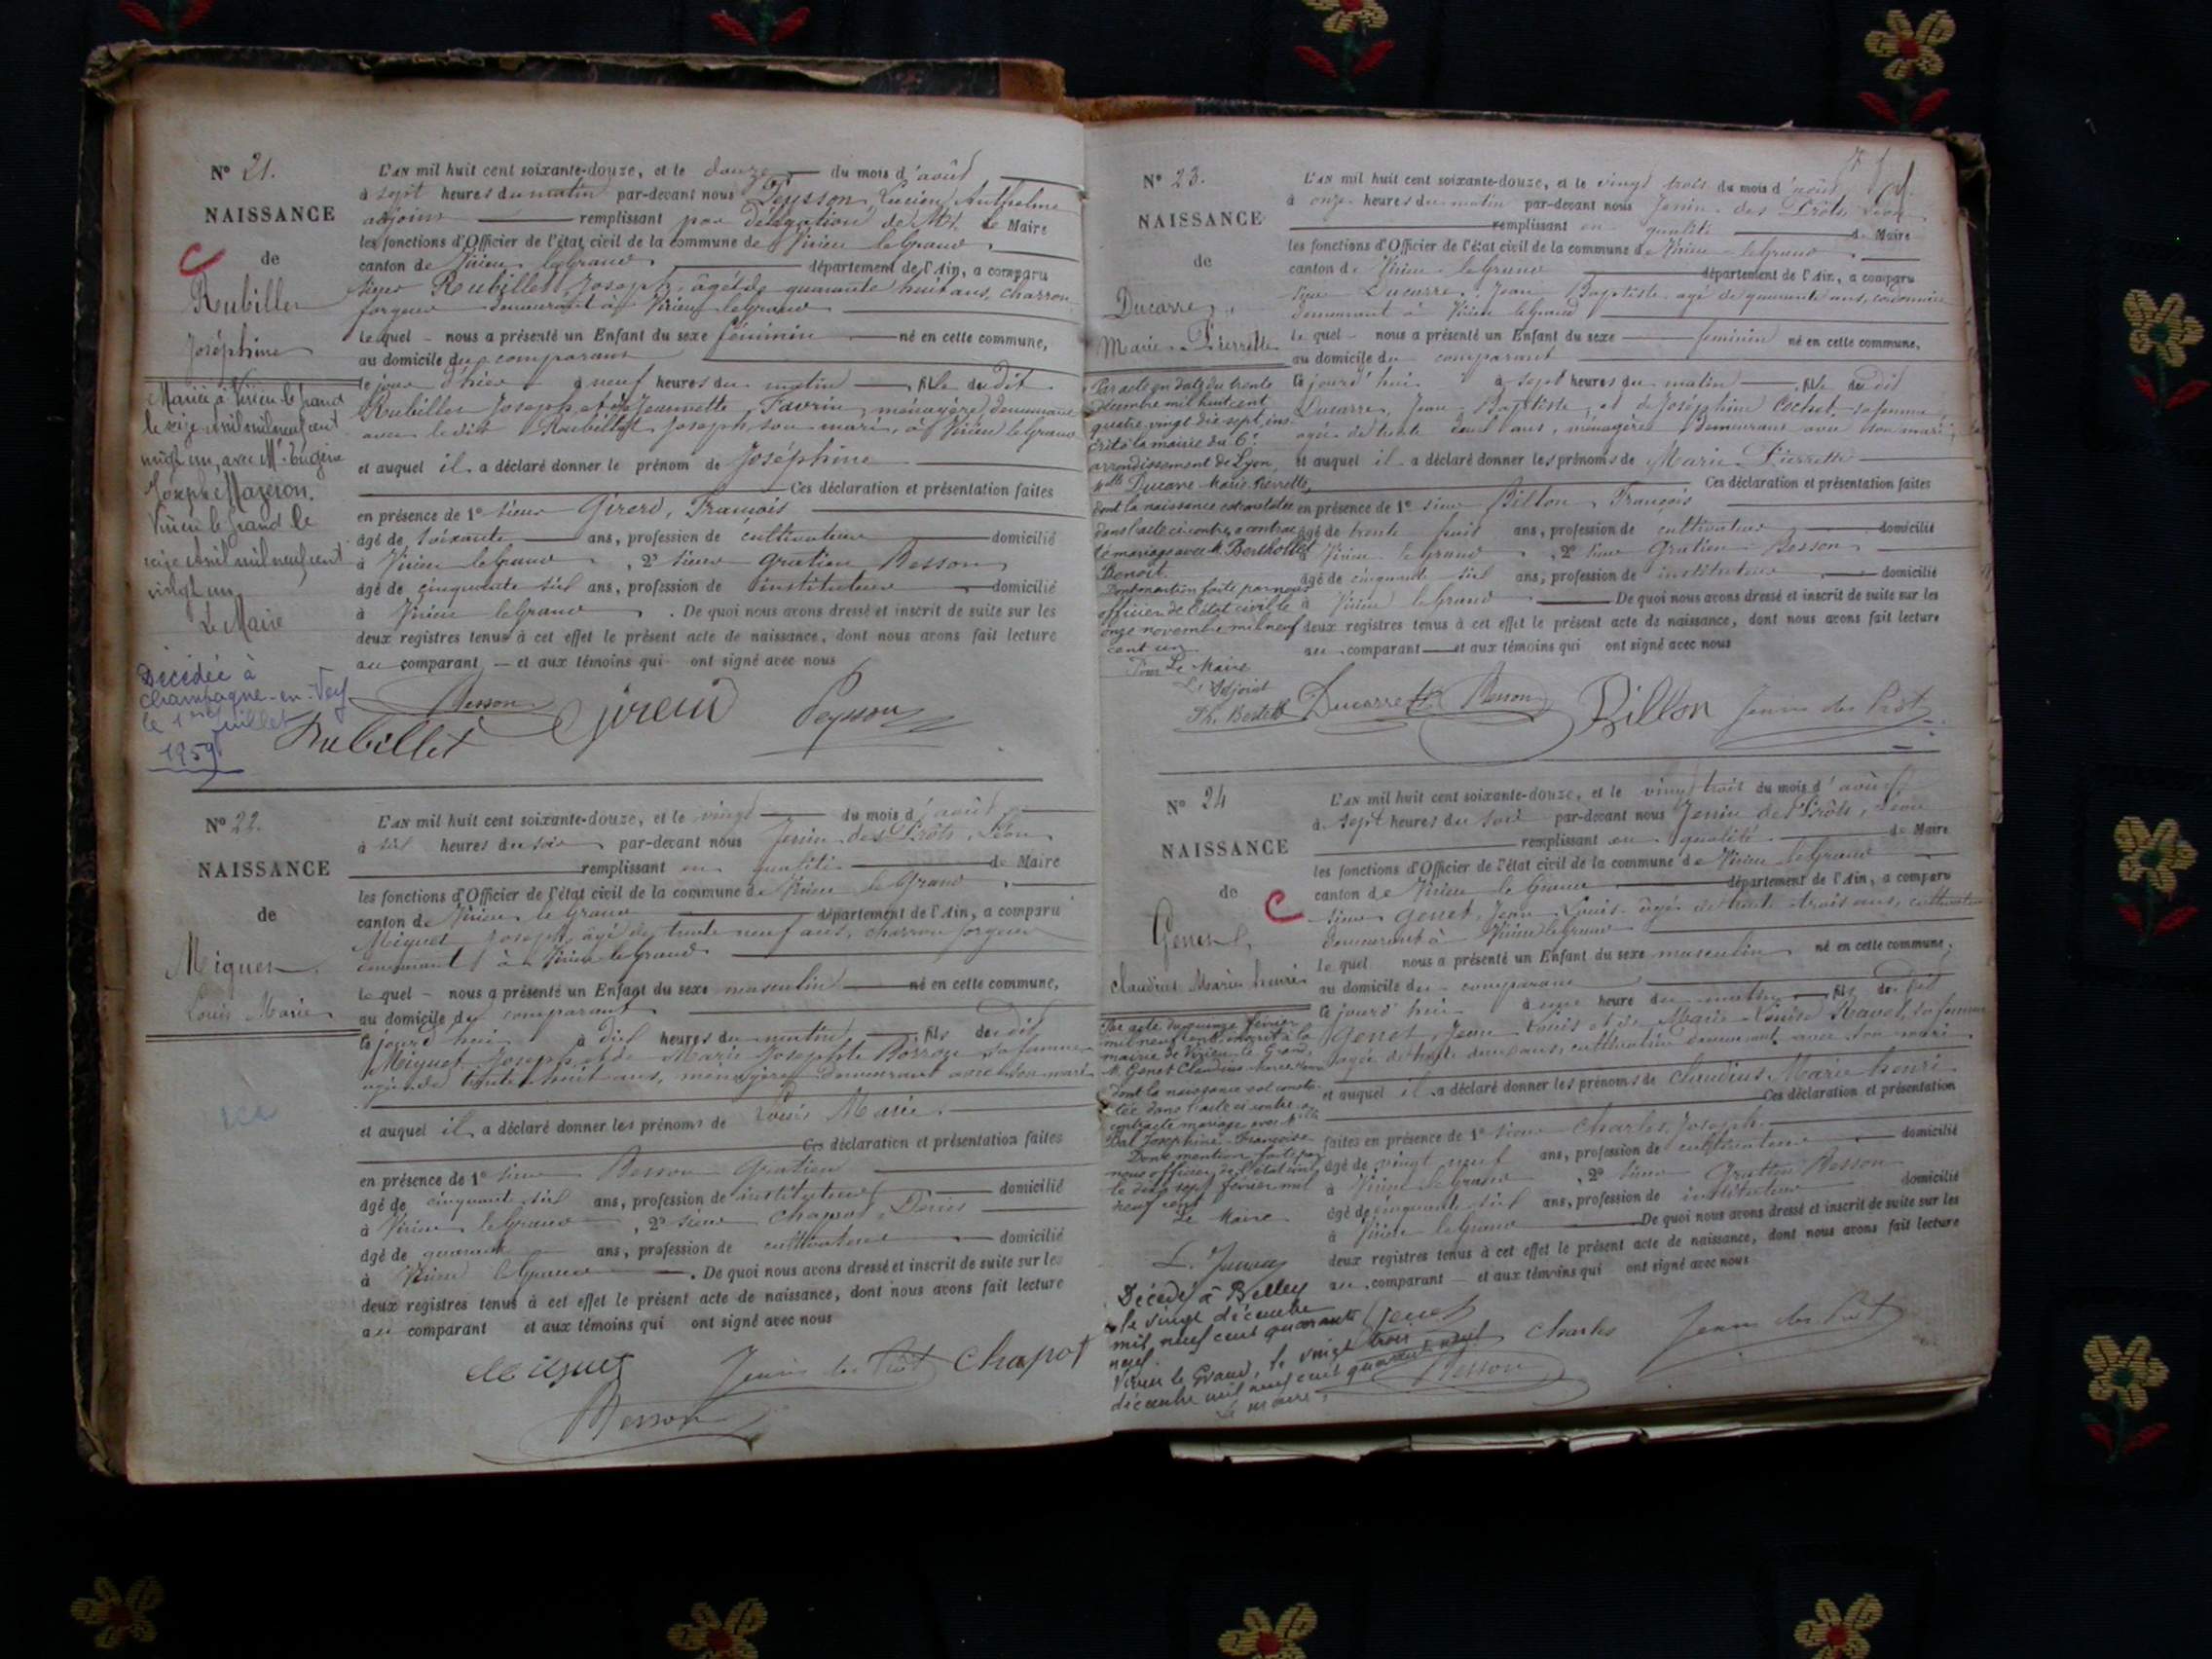 N° 21.
NAISSANCE
de
Rubillet
Joséphine
Mariée à Virieu le Grand
le seize avril mil neuf cent
vingt un, avec Mr Eugène
Joseph Mazeron.
Virieu le Grand le
seize avril mil neuf cent
vingt un
Le Maire
Décédée à
Champagne-en-Val
le 1er juillet
1959
L'AN mil huit cent soixante-douze, et le douze du mois d'août
à sept heures du matin par-devant nous Peysson, Lucien Anthelme
adjoint remplissant par délégation de Mr. le Maire
les fonctions d'Officier de l'état civil de la commune de Virieu le Grand
canton de Virieu le Grand département de l'Ain, a comparu
sieur Rubillet, Joseph, âgé de quarante huit ans, charron
forgeur demeurant à Virieu le Grand
lequel nous a présenté un Enfant du sexe féminin né en cette commune,
au domicile du comparant
le jour d'hier à neuf heures du matin, fille du dit
Rubillet Joseph et de Jeannette Favrin, ménagère, demeurant
avec le dit Rubillet Joseph son mari, à Virieu le Grand
et auquel il a déclaré donner le prénom de Joséphine
Ces déclaration et présentation faites
en présence de 1° sieur Girerd, François
âgé de soixante ans, profession de cultivateur domicilié
à Virieu le Grand, 2° sieur Gratien Besson
âgé de cinquante six ans, profession de instituteur domicilié
à Virieu le Grand. De quoi nous avons dressé et inscrit de suite sur les
deux registres tenus à cet effet le présent acte de naissance, dont nous avons fait lecture
au comparant et aux témoins qui ont signé avec nous
Besson Girerd Peysson
Rubillet
N° 22.
NAISSANCE
de
Miguet
Louis Marie
L'AN mil huit cent soixante-douze, et le vingt du mois d'août
à six heures du soir par-devant nous Jenin des Prôts, Léon
remplissant en qualité de Maire
les fonctions d'Officier de l'état civil de la commune de Virieu le Grand
canton de Virieu le Grand département de l'Ain, a comparu
Miguet Joseph, âgé de trente neuf ans, charron forgeur
demeurant à Virieu le Grand
lequel nous a présenté un Enfant du sexe masculin né en cette commune,
au domicile du comparant
ce jourd'hui à dix heures du matin, fils du dit
Miguet Joseph et de Marie Josephte sa femme
âgée de trente huit ans, ménagère demeurant avec son mari
et auquel il a déclaré donner les prénoms de Louis Marie.
Ces déclaration et présentation faites
en présence de 1° sieur Besson Gratien
âgé de cinquante six ans, profession de instituteur domicilié
à Virieu le Grand, 2° sieur Chapot, Denis
âgé de quarante ans, profession de cultivateur domicilié
à Virieu le Grand. De quoi nous avons dressé et inscrit de suite sur les
deux registres tenus à cet effet le présent acte de naissance, dont nous avons fait lecture
au comparant et aux témoins qui ont signé avec nous
Miguet Jenin des Prôts Chapot
Besson
N° 23.
NAISSANCE
de
Ducarre,
Marie Pierrette
Par acte en date du trente
décembre mil huit cent
quatre vingt dix sept, ins-
crit à la mairie du 6e
arrondissement de Lyon,
Melle Ducarre Marie Pierrette,
dont la naissance est constatée
dans l'acte ci contre, a contrac-
té mariage avec M. Berthollet
Benoit.
Dont mention faite par nous
officier de l'état civil le
onze novembre mil neuf
cent un
Pour Le Maire
L'Adjoint
L'AN mil huit cent soixante-douze, et le vingt trois du mois d'août
à onze heures du matin par-devant nous Jenin des Prôts, Léon
remplissant en qualité de Maire
les fonctions d'Officier de l'état civil de la commune de Virieu le Grand
canton de Virieu le Grand département de l'Ain, a comparu
sieur Ducarre, Jean Baptiste, âgé de quarante ans, cordonnier
demeurant à Virieu le Grand
lequel nous a présenté un Enfant du sexe féminin né en cette commune,
au domicile du comparant
ce jourd'hui à sept heures du matin, fille du dit
Ducarre, Jean Baptiste, et de Joséphine Cochet, sa femme
âgée de trente deux ans, ménagère demeurant avec son mari,
et auquel il a déclaré donner les prénoms de Marie Pierrette
Ces déclaration et présentation faites
en présence de 1° sieur Billon, François
âgé de trente huit ans, profession de cultivateur domicilié
à Virieu le Grand, 2° sieur Gratien Besson
âgé de cinquante six ans, profession de instituteur domicilié
à Virieu le Grand De quoi nous avons dressé et inscrit de suite sur les
deux registres tenus à cet effet le présent acte de naissance, dont nous avons fait lecture
au comparant et aux témoins qui ont signé avec nous
Ducarre Besson Billon Jenin des Prôts
N° 24
NAISSANCE
de
Genet,
Claudius Marie henri
Par acte du quinze février
mil neuf cent, inscrit à la
mairie de Virieu le Grand,
M. Genet Claudius Marie Henri
dont la naissance est consta-
tée dans l'acte ci contre a
contracté mariage avec Melle
Bal Joséphine Françoise
Dont mention faite par
nous officier de l'état civil
le dix sept février mil
neuf cent
Le Maire
Décédé à Belley
le vingt décembre
mil neuf cent quarante
neuf.
Virieu le Grand, le vingt trois
décembre mil neuf cent quarante neuf
Le maire,
L'AN mil huit cent soixante-douze, et le vingt trois du mois d'août
à sept heures du soir par-devant nous Jenin des Prôts, Léon
remplissant en qualité de Maire
les fonctions d'Officier de l'état civil de la commune de Virieu le Grand
canton de Virieu le Grand département de l'Ain, a comparu
sieur Genet, Jean Louis âgé de trente trois ans, cultivateur
demeurant à Virieu le Grand
lequel nous a présenté un Enfant du sexe masculin né en cette commune,
au domicile du comparant
ce jourd'hui à heure du matin, fils du dit
Genet, Jean Louis et de Marie Louise Ravet, sa femme
âgée de trente deux ans, cultivatrice demeurant avec son mari
et auquel il a déclaré donner les prénoms de Claudius Marie henri
Ces déclaration et présentation
faites en présence de 1° sieur Charles, Joseph
âgé de vingt neuf ans, profession de cultivateur domicilié
à Virieu le Grand, 2° sieur Gratien Besson
âgé de cinquante six ans, profession de instituteur domicilié
à Virieu le Grand De quoi nous avons dressé et inscrit de suite sur les
deux registres tenus à cet effet le présent acte de naissance, dont nous avons fait lecture
au comparant et aux témoins qui ont signé avec nous
Genet Charles Jenin des Prôts
Besson